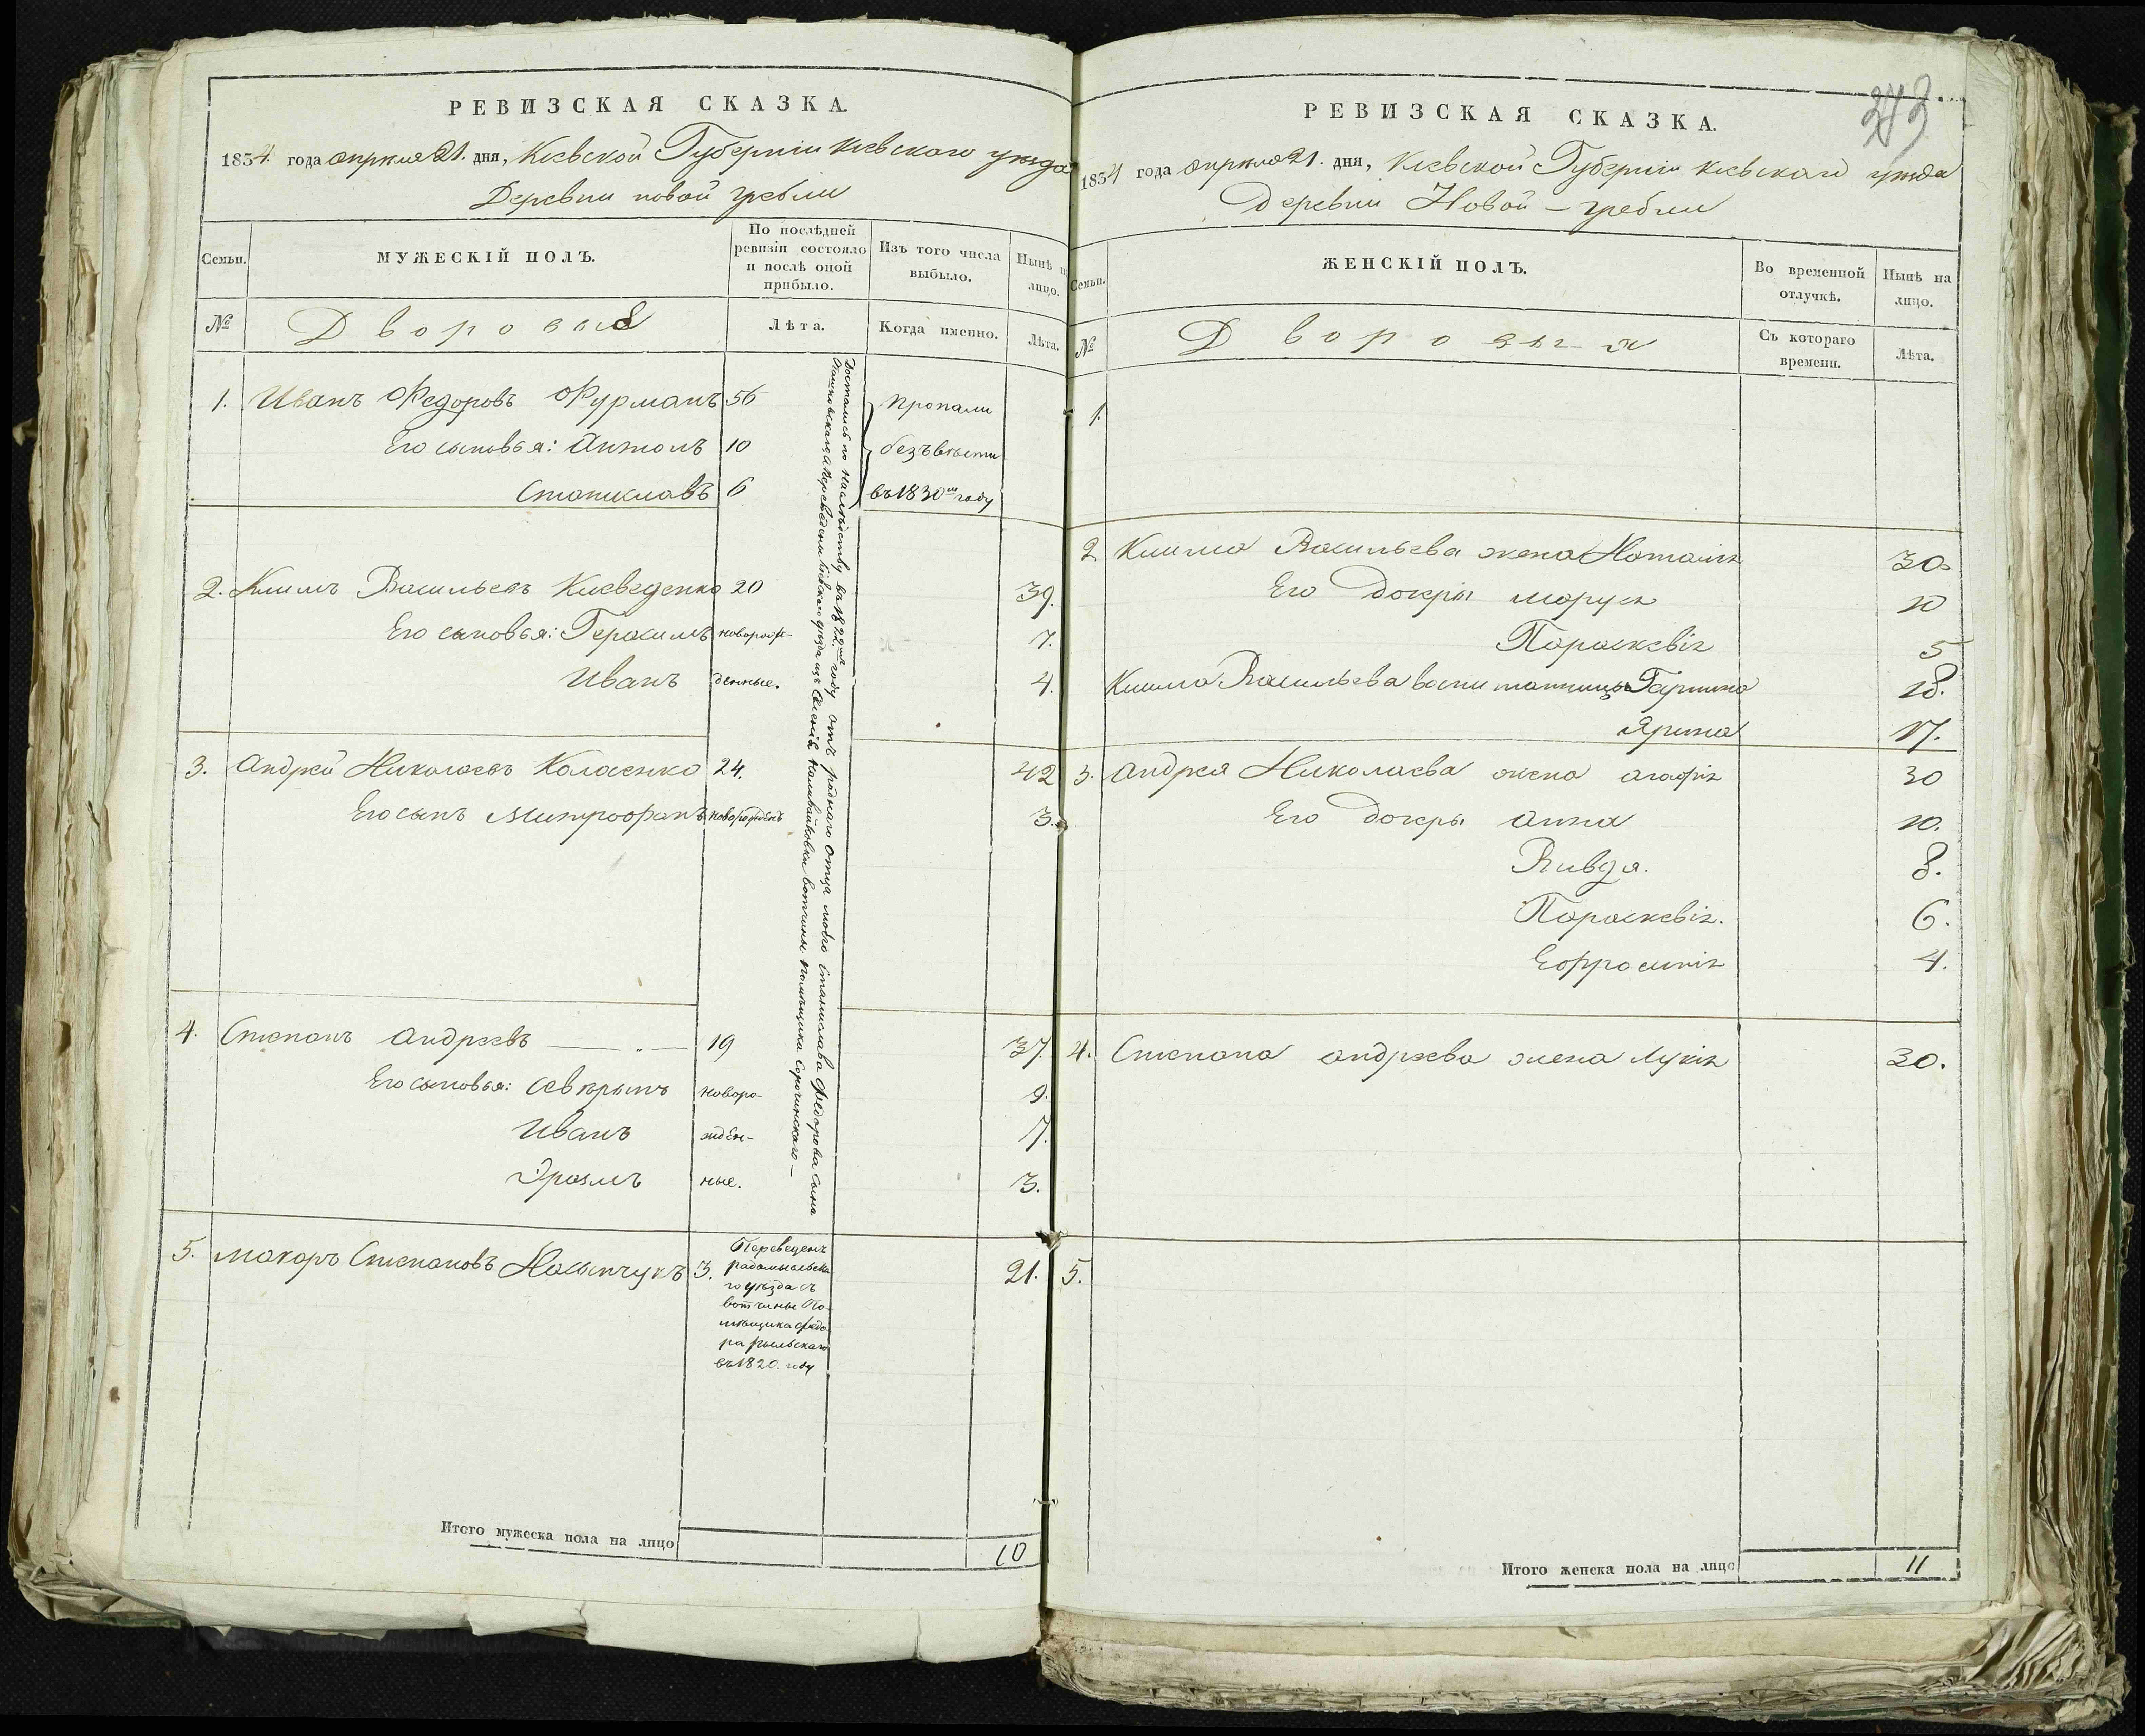 РЕВИЗСКАЯ СКАЗКА.
1854 года апреля 21. дня, Кіевской Губерніи Кіевскаго уѣзда
Деревни новой гребли
Семьи.
МУЖЕСКІЙ ПОЛЪ.
По послѣдней ревизіи состояло и послѣ оной прибыло.
Изъ того числа выбыло.
Нынѣ на лицо.
№
Дворовые
Лѣта.
Когда именно.
Лѣта.
1. Иванъ Федоровъ Фурманъ 56 пропали
Его сыновья: Антонъ 10 безъ вѣсти
Станиславъ 6 въ 1830 году
Достались по наслѣдству въ 1822 году отъ роднаго отца моего Станислава Федорова сына
переведены Кіевскаго уѣзда изъ селенія вотчины помѣщика
2. Климъ Васильевъ 20 39.
Его сыновья: Герасимъ новорож- 7.
Иванъ денные. 4.
3. Андрей Николаевъ 24. 42
Его сынъ Митрофанъ новорожденъ 3.
4. Степанъ Андреевъ — „ — 19 37.
Его сыновья: Севѣрынъ новоро- 9.
Иванъ жден- 7.
Эразмъ ные. 3.
5. Макаръ Степановъ 3. 21.
Переведенъ
радомысльска
го уѣзда съ
вотчины По-
мѣщика Федо
ра Рыльскаго
въ 1820. году
Итого мужеска пола на лицо 10
273
РЕВИЗСКАЯ СКАЗКА.
1854 года апреля 21. дня, Кіевской Губерніи Кіевскаго уѣзда
Деревни Новой – гребли
Семьи.
ЖЕНСКІЙ ПОЛЪ.
Во временной отлучкѣ.
Нынѣ на лицо.
№
Дворовыя
Съ котораго времени.
Лѣта.
1.
2 Клима Васильева жена Наталія 30.
Его дочери Маруся 10
Параскевія 5
Клима Васильева воспитанницы 18.
Ярина 17.
3. Андрея Николаева жена Агафія 30
Его дочери Анна 10.
Вивдя. 8.
Параскевія. 6.
Ефросинія 4.
4. Степана Андреева жена Лукія 30.
5.
Итого женска пола на лицо 11